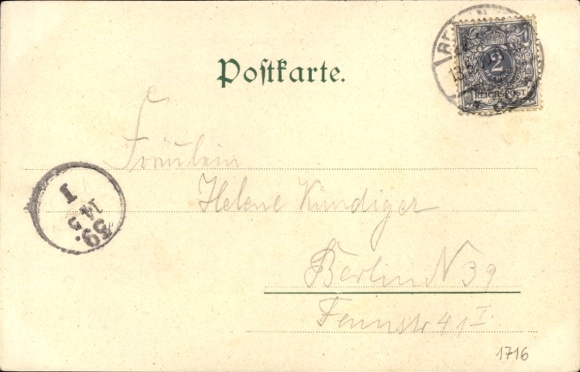 Postkarte.
2
Fräulein
Helene Kündiger
Berlin N 39
Fennstr 41 I
39.
14 5
I
1716